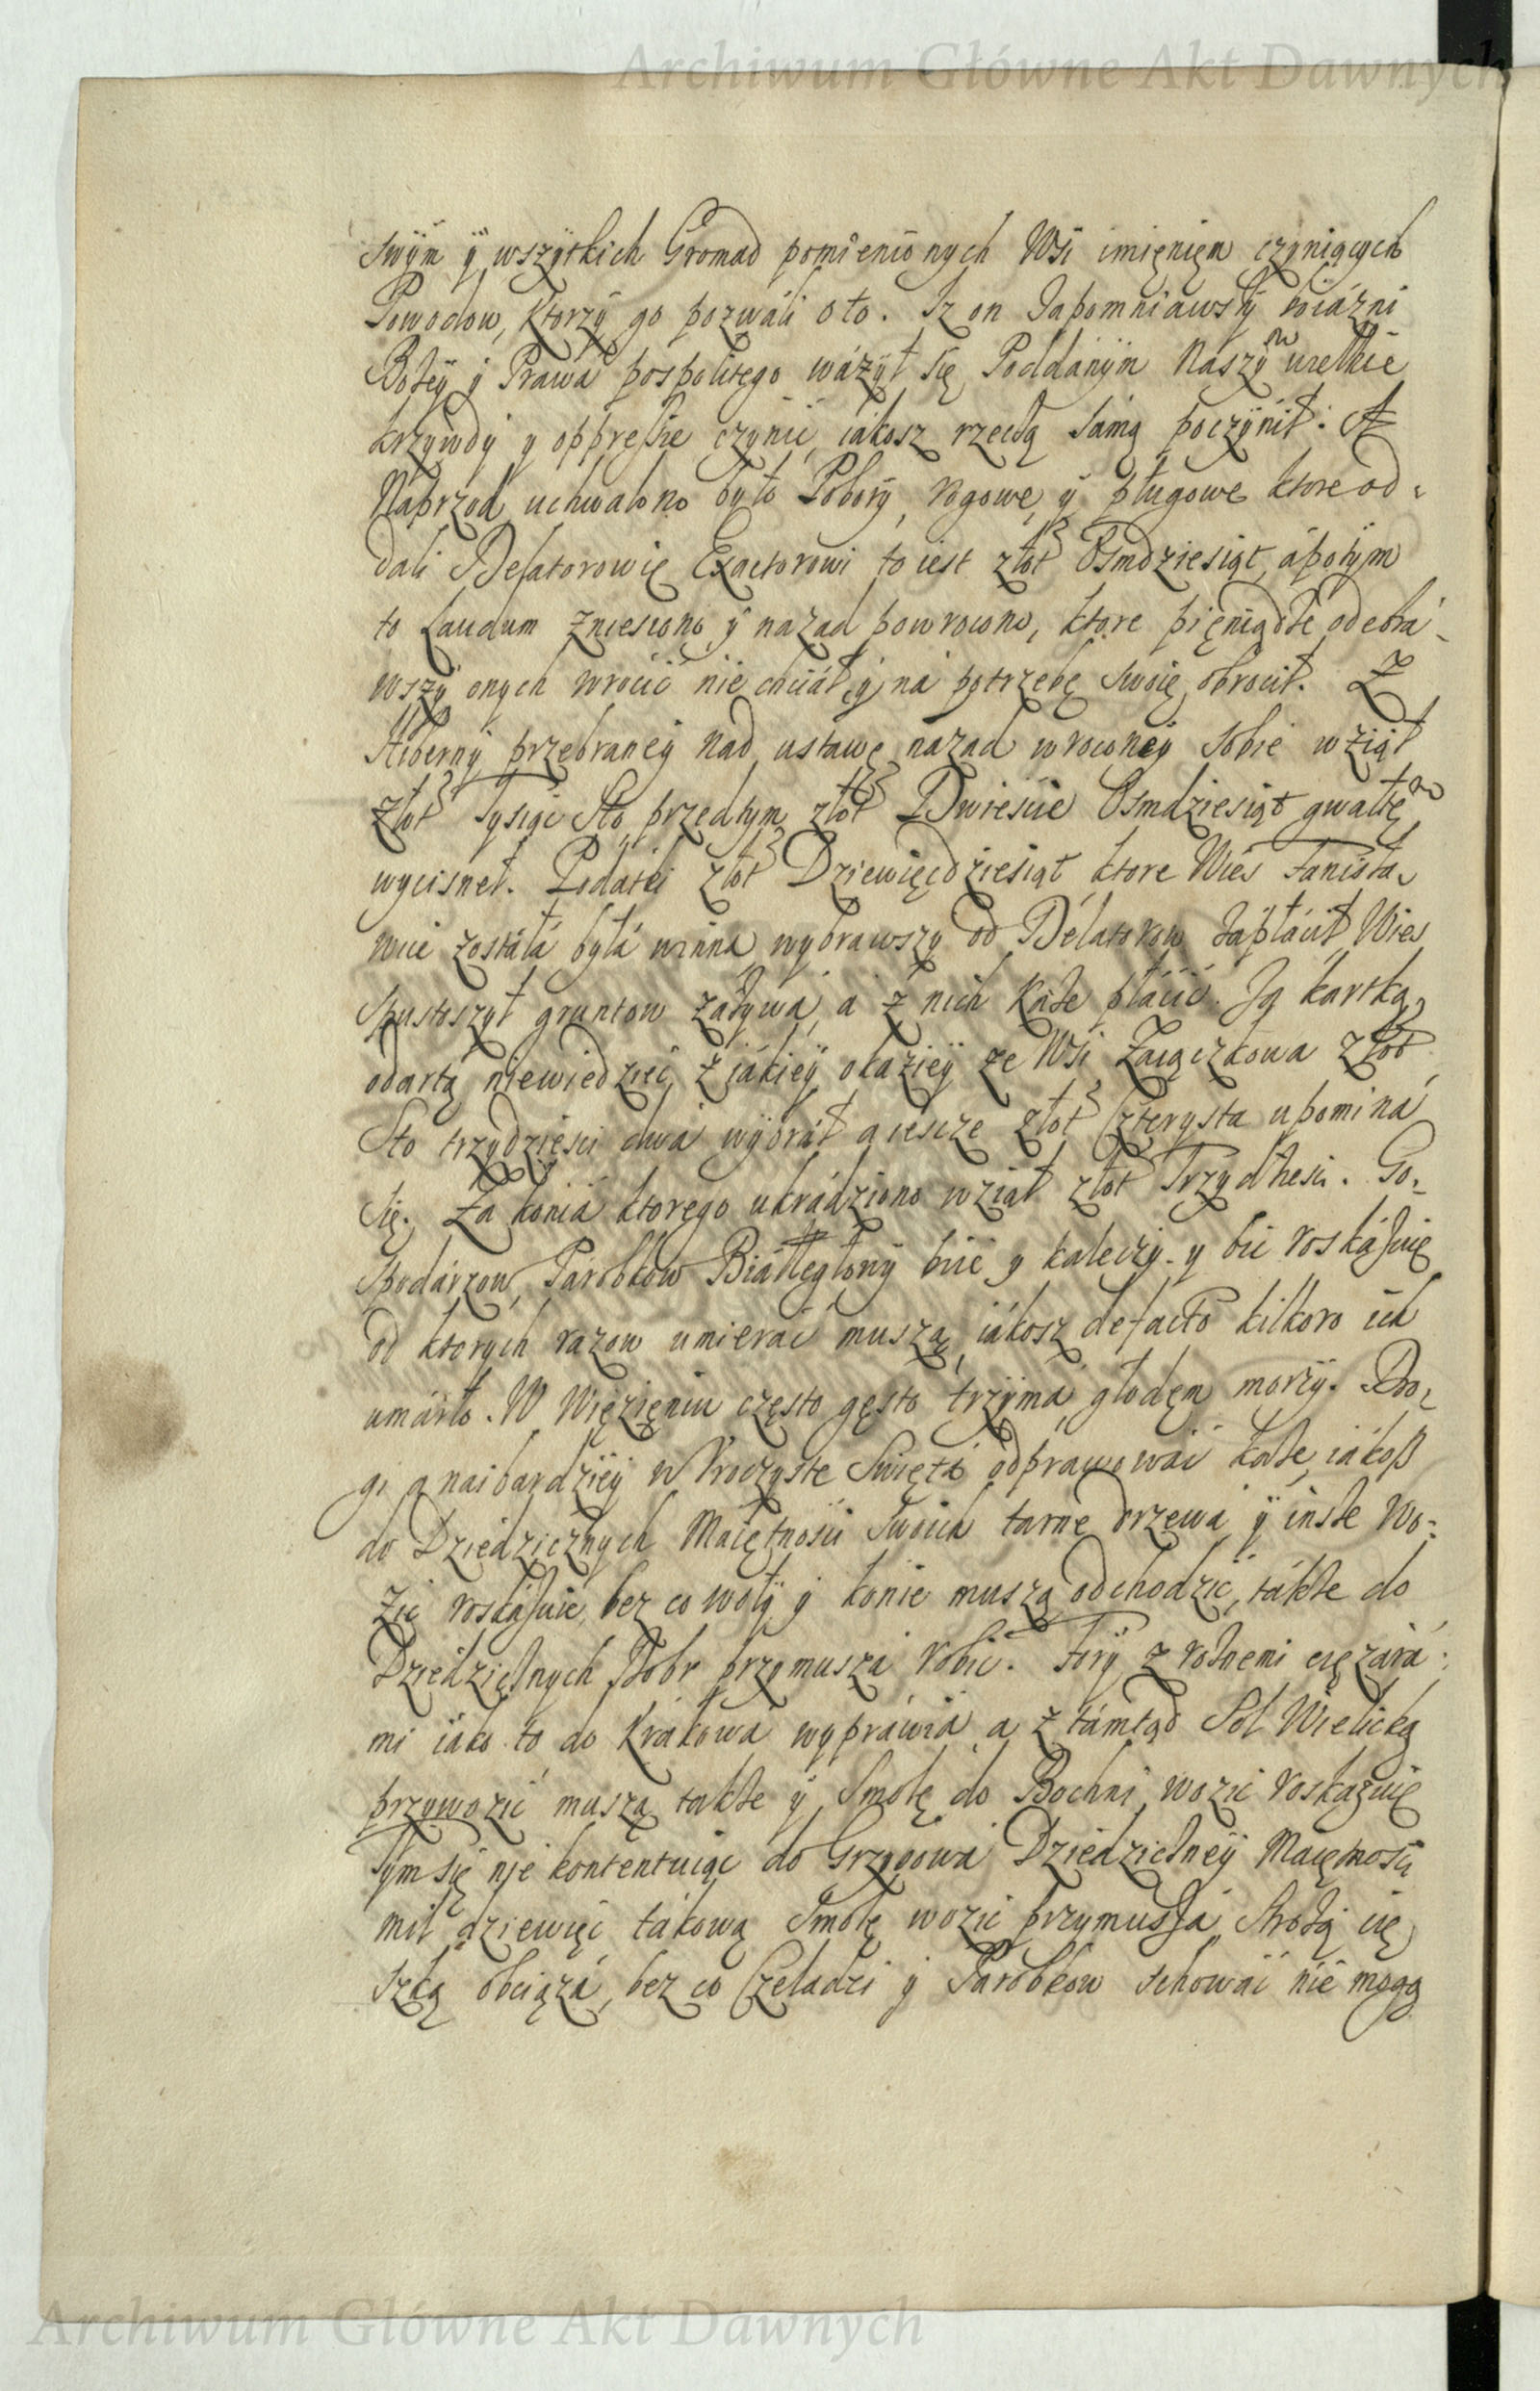 Archiwum Główne Akt Dawnych
swym y wszytkich Gromad pomienionych Wsi imięnięm czyniących
Powodow, ktorzy go pozwáli oto. Iz on Zapomniawszy boiázni
Bożey y Prawá pospolitego wáżył się Poddánym Naszym wielkie
krzywdy y oppressie czynić, iákosz rzeczą sámą poczynił. A
Naprzod uchwalono było Pobory, rogowe, y pługowe ktore od-
dali Delatorowie Exactorowi to iest złot Osmdziesiąt, á potym
to Laudum zniesiono y nazad powrocono, ktore pięniądze odebrá-
wszy onych wrocić nie chciáł, y ná potrzebę swoię obrocił. Z
Hiberny przebraney nad ustawę nazad wroconey sobie wziął
złot Tysiąc Sto, przedtym złot Dwieście Osmdziesiąt gwałtem
wycisneł. Podatki złot Dziewięćdziesiąt ktore Wieś
zostáłá byłá winná wybrawszy od Delatorow Zápłácił Wieś
spustoszył gruntow záżywa, a z nich każe płácić. Ią kartką
odartą niewiedzieć z iákiey okaziey ze Wsi Zaiączkowa złot
Sto trzydzieści dwá wybráł a ieścze złot Czterysta upomina
się. Zá koniá ktorego ukrádziono wziął złot Trzydzieści. Go-
spodárzow, Parobkow Białłegłowy biie y kaleczy. y bić roskázuię
od ktorych razow umierać muszą, iákosz de facto kilkoro ich
umárło. W Więzięniu często gęsto trzyma, głodęm morzy. Dro-
gi a naibardziey w Uroczyste Swięta odprawować każe, iákosz
do Dziedzicznych Maiętnosci swoich tarne drzewa y insze wo-
zić roskázuie, bez co woły y konie muszą odchodzić, tákże do
Dziedzicznych Dobr przymusza robić. Fory z rożnemi ciężárá-
mi iáko to do Krákowá wypráwia a z támtąd Sol Wielicką
przywozić muszą także y Smołę do Bochni wozić roskazuię
Tym się nie kontentuiąc do Grzybowa Dziedziczney Maiętnosci
mil dziewięć tákową Smołę wozić przymusza, Strożą cię
szką obciąża, bez co Czeladzi y Parobkow schowáć nie mogą
Archiwum Główne Akt Dawnych